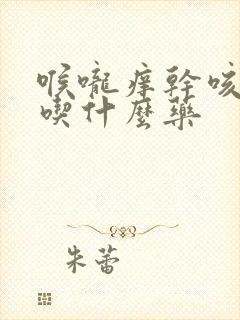 喉嚨痒幹咳
喫什麼藥
朱蕾